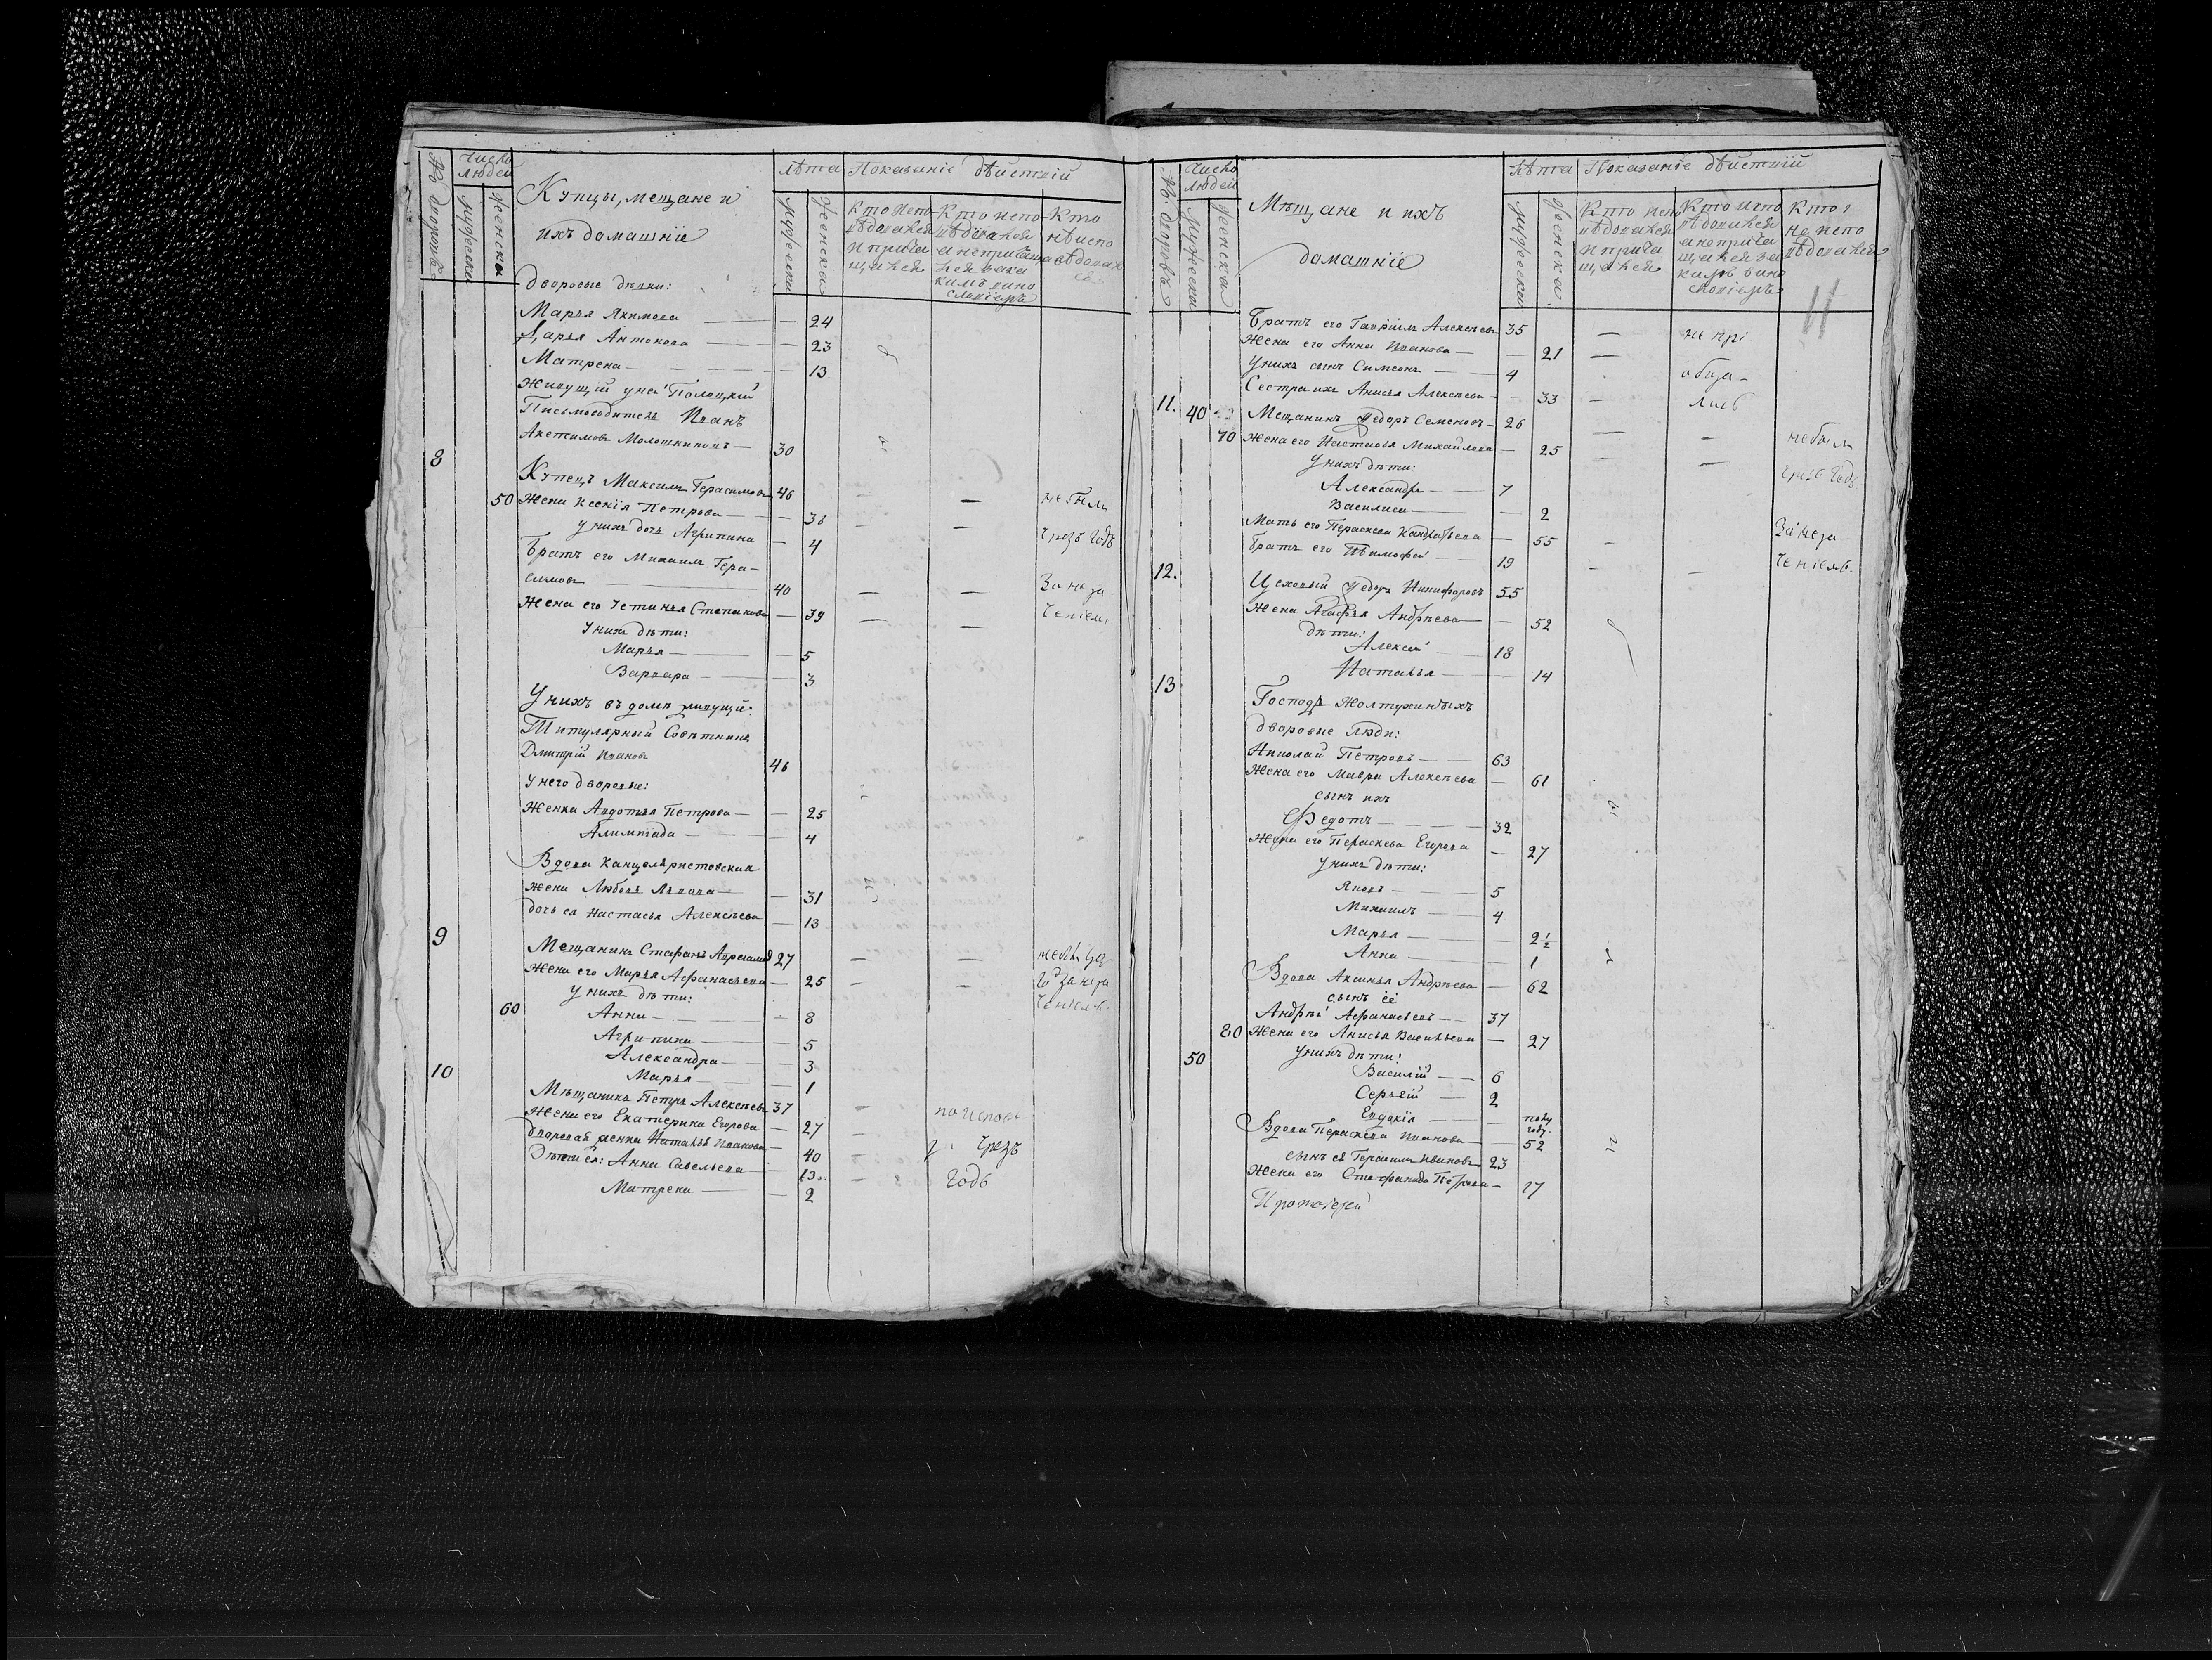 № дворовъ
Число людей
мужеска
женска
Купцы, мещане и
ихъ домашнiе
лѣта
мужески
женски
Показанiе дѣйствiй
Кто испо-
вѣдовался
и прича
щался
Кто испо-
вѣдовался
а не прича
щался
Кто
не испо
вѣдовалс
дворовые дѣвки:
Марья Якимова — — 24
Дарья Антонова — — 23
Матрена — — 13
Живущiй у неи
Письмоводитель Иванъ
30
8 Купецъ Максимъ Герасимовъ 46 — — не были
50 Жена Ксенiя Петрова — 36 — —
у нихъ дочь Агрипина — 4 чрезъ годъ
Братъ его Михаилъ Гера-
симовъ — 40 — — За неза
Жена его Устинья Степанова — 39 — — ченiемъ
У нихъ дѣти:
Марья — — 5
Варвара — — 3
У нихъ въ домѣ живущiй:
Титулярный Совѣтникъ
Дмитрiй Ивановъ 46
у него дворовые:
Женка Авдотья Петрова — — 25
Алимпiада — — 4
Вдова Канцеляристовская
жена Любовь Львова — — 31
дочь ея Настасья Алексѣева — 13
9 Мещанинъ Стефанъ 27 — —
Жена его Марья Афанасьева — 25 — —
У нихъ дѣти:
60 Анна — — 8
Агрипина — — 5
Александра — — 3
Марья — — 1
10 Мѣщанинъ Петръ Алексѣевъ 37 —
Жена его Екатерина Егорова — 27 —
дворовая женка Наталья Иванова — 40 чрезъ
Дѣти ея: Анна Савельева — 13 — годъ
Матрена — — 2
№ дворовъ
Число людей
мужеска
женска
Мѣщане и ихъ
домашнiе
лѣта
мужески
женска
Показанiе дѣйствiй
Кто испо
вѣдовался
и прича
щался
Кто испо
вѣдовался
а не прича
щался за
какимъ вино
словiемъ
Кто
не испо
вѣдовался
11
Братъ его Гаврiилъ Алексѣевъ 35 — не прi
Жена его Анна Иванова — — 21 —
У нихъ сынъ Симеонъ — 4
Сестра ихъ Анисья Алексѣева — 33 —
11. 40 Мещанинъ Федоръ Семеновъ — 26 — — не были
70 Жена его Настасья Михайлова — 25 — — чрезъ годъ
У нихъ дѣти:
Александръ — 7
Василиса — — 2
Мать его Параскева Кандратьева — 55 — — За неза
Братъ его Тимофей — 19 — — ченiемъ.
12. Цеховый Федоръ Никифоровъ 55
Жена Агафья Андрѣева — — 52
дѣти:
Алексей — 18
Наталья — — 14
13 Господъ Жолтухиныхъ
дворовые люди:
Николай Петровъ — 63
Жена его Мавра Алексѣева — 61
сынъ ихъ
Федотъ — 32
Жена его Параскева Егорова — 27
У нихъ дѣти:
Яковъ — 5
Михаилъ — 4
Марья — — 2½
Анна — — 1
Вдова Аксинья Андрѣева — 62
сынъ ее
Андрѣй Афанасьевъ — 37
80 Жена его Анисья Васильева — 27
50 У нихъ дѣти:
Василiй — 6
Сергѣй — 2
Евдокiя — — полу
году.
Вдова Параскева Иванова — — 52
сынъ ея Герасимъ Ивановъ 23
Жена его Стефанида Петрова — 27
Протоiерей